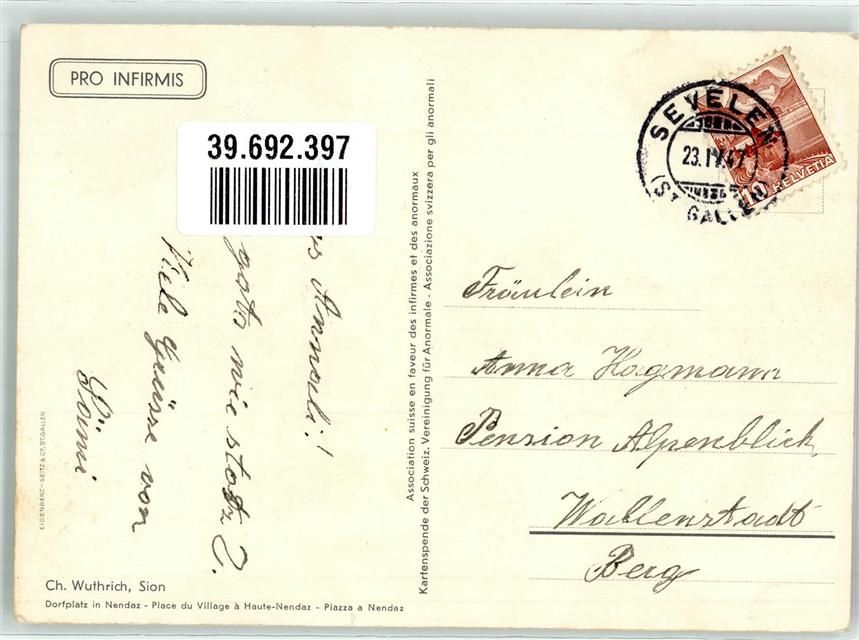 PRO INFIRMIS
39.692.397
Annali!
wie
Viele Grüsse von
Ch. Wuthrich, Sion
Dorfplatz in Nendaz - Place du Village à Haute-Nendaz - Piazza a Nendaz
EIDENBENZ-SEITZ & CO. ST. GALLEN
Association suisse en faveur des infirmes et des anormaux
Kartenspende der Schweiz. Vereinigung für Anormale - Associazione svizzera per gli anormali
SEVELEN
23.IV.47
(ST. GALLEN)
10 HELVETIA
Fräulein
Anna Hagmann
Pension Alpenblick
Wallenstadt
Berg